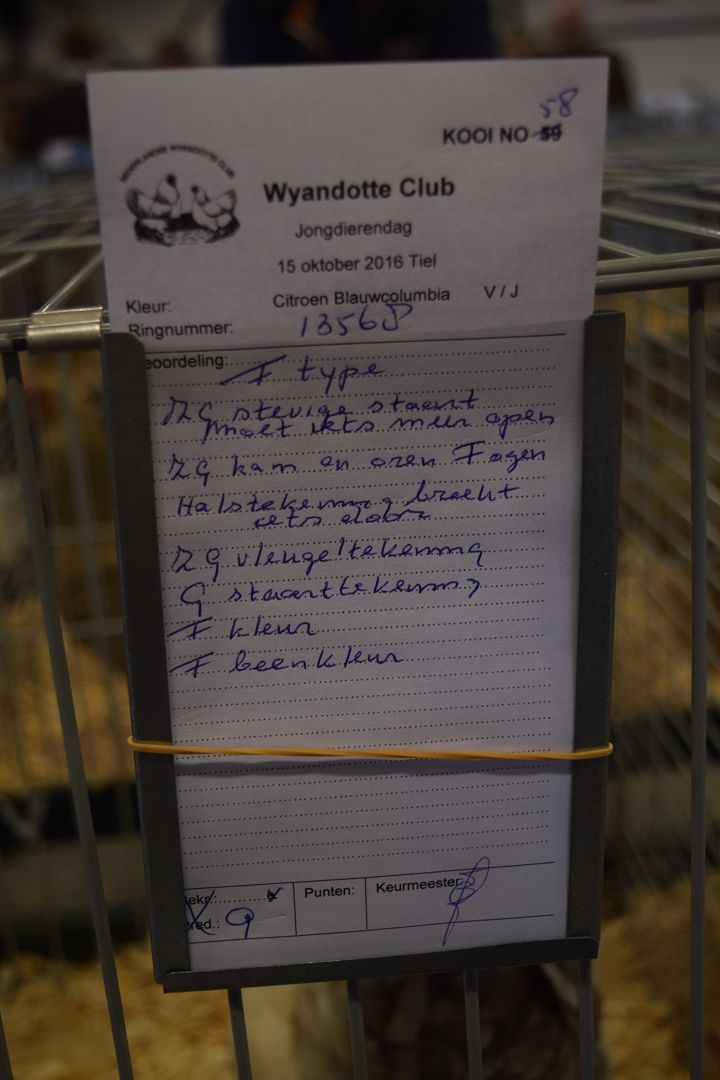 58
KOOI NO 59
NEDERLANDSE WYANDOTTE CLUB
Wyandotte Club
Jongdierendag
15 oktober 2016 Tiel
Kleur: Citroen Blauwcolumbia V / J
Ringnummer: 1356
eoordeling:
F type
ZG stevige staart
moet iets meer open
ZG kam en oren F ogen
Halstekening breekt
iets door
ZG vleugeltekening
G staarttekening
F kleur
F beenkleur
ekr.:
Punten:
Keurmeester:
red.: 9